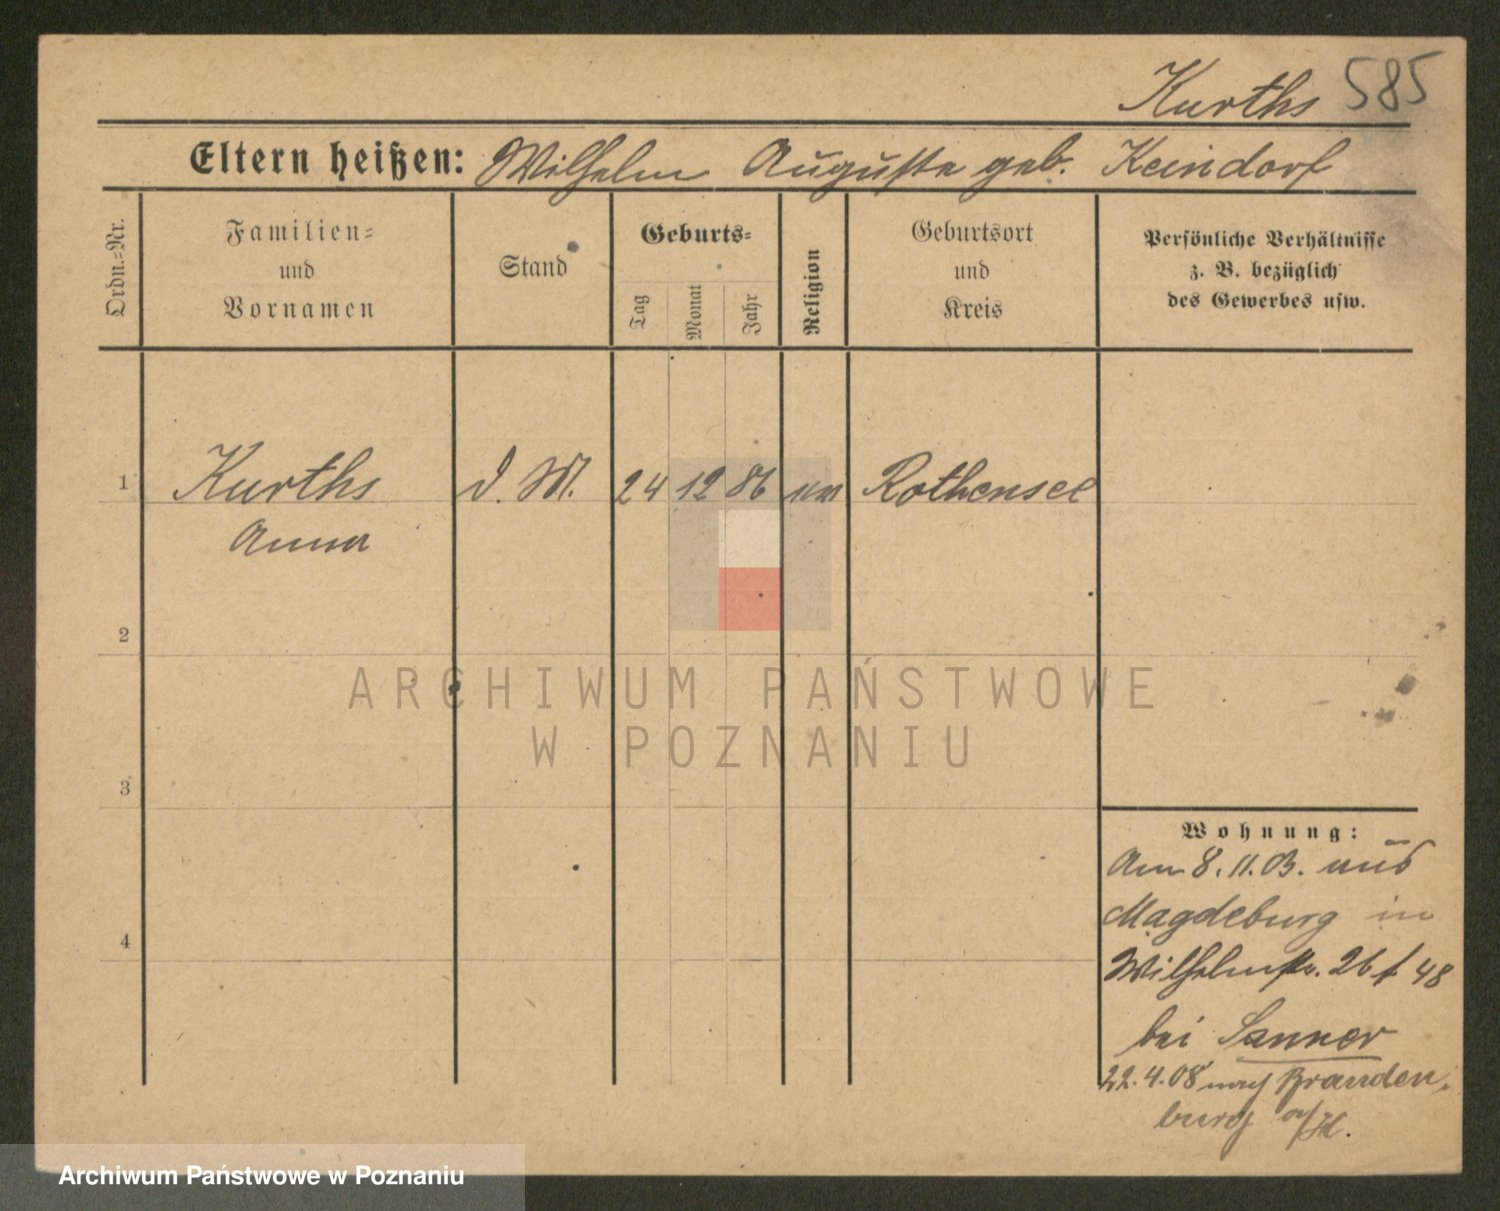 Kurths 585
Eltern heißen: Wilhelm Auguste geb. Keindorf
Ordn.-Nr.
Familien-
und
Vornamen
Stand
Geburts-
Tag
Monat
Jahr
Religion
Geburtsort
und
Kreis
Persönliche Verhältnisse
z. B. bezüglich
des Gewerbes usw.
1 Kurths d. M. 24 12 86 Rothensee
Anna
2
ARCHIWUM PAŃSTWOWE
W POZNANIU
3
Wohnung:
Am 8.11.03. aus
4
Magdeburg in
Wilhelmstr. 26 f 48
bei Sanner
22.4.08 nach Branden-
burg a/H.
Archiwum Państwowe w Poznaniu